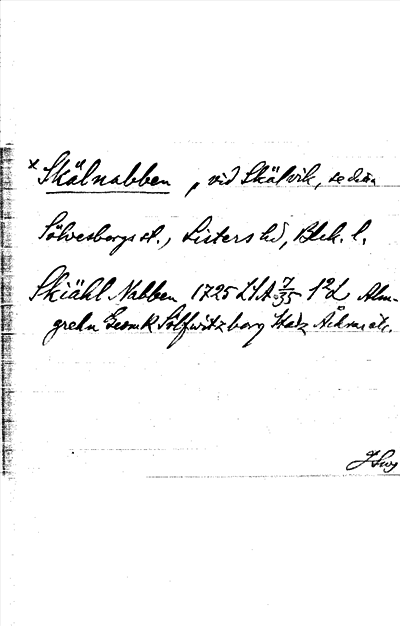 * Skälnabben, vid Skälvik, se denna
Sölvesborgs st., Listers hd, Blek. l.
Skiähl Nabben 1725 LSA 7/35 1²L Alm-
grehn Geom K Sölfwitzborg Stadz